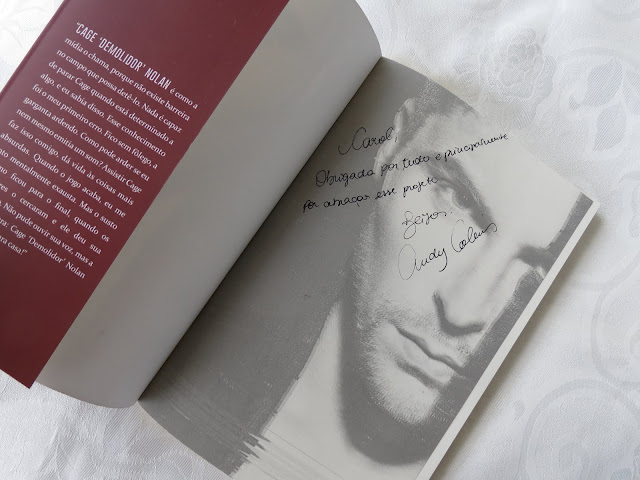 "CAGE 'DEMOLIDOR' NOLAN é como a
mídia o chama, porque não existe barreira
no campo que possa detê-lo. Nada é capaz
de parar Cage quando está determinado a
algo, e eu sabia disso. Esse conhecimento
foi o meu primeiro erro. Fico sem fôlego, a
garganta ardendo. Como pode arder se eu
nem mesmo emiti um som? Assistir Cage
faz isso comigo, dá vida às coisas mais
absurdas. Quando o jogo acaba, eu me
mentalmente exausta. Mas o susto
ficou para o final, quando os
o cercaram e ele deu sua
Não pude ouvir sua voz, mas a
Cage 'Demolidor' Nolan
casa!"
Carol,
Obrigada por tudo e principalmente
por abraçar esse projeto
Beijos!